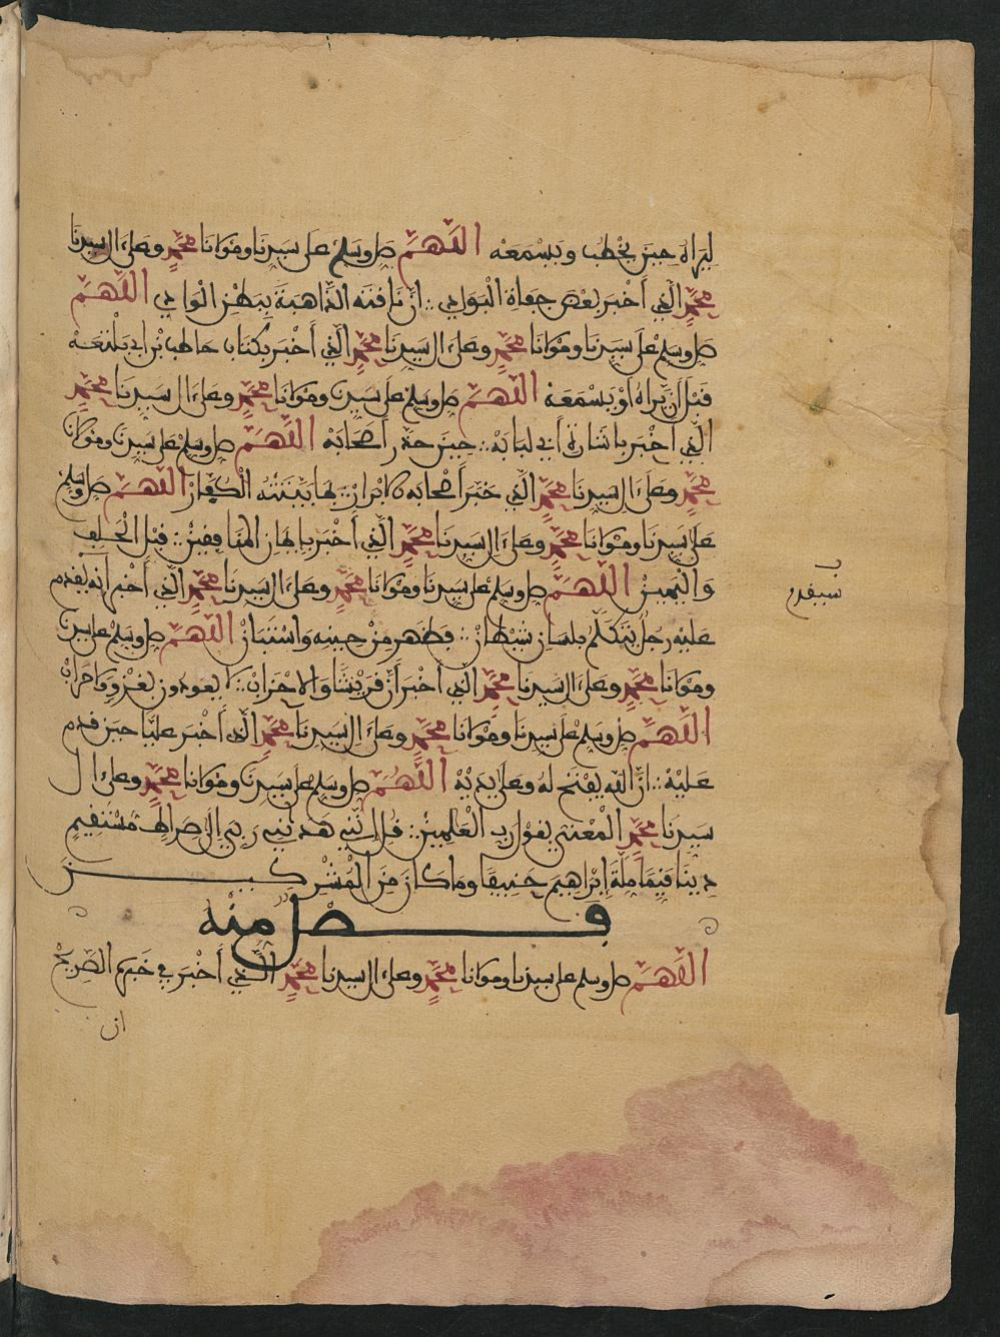 ليراه حين يخطب ويسمعه اللهم صل وسلم على سيدنا ومولانا محمد وعلى ال سيدنا
محمد الذي أخبر بعض جفاة البوادي ∴ ان نافته الذاهبة ببطن الوادي اللهم
صل وسلم على سيدنا ومولانا محمد وعلى ال سيدنا محمد الذي أخبر بكتاب حاطب بن ابي بلتعة
قبل أن يراه أو يسمعه اللهم صل وسلم على سيدنا ومولانا محمد وعلى ال سيدنا محمد
الذي أخبر باشارة أبي لبابة ∴ حين أصحابه اللهم صل وسلم على سيدنا ومولانا
محمد وعلى ال سيدنا محمد الذي أصحابه الكفار اللهم صل وسلم
على سيدنا ومولانا محمد وعلى ال سيدنا محمد الذي أخبر المنافقين ∴ قبل الحلف
واليمين اللهم صل وسلم على سيدنا ومولانا محمد وعلى ال سيدنا محمد الذي أخبر أنه يقدم
سيقدم
عليه رجل يتكلم بلسان شيطان ∴ فظهر من حينه واستبان اللهم صل وسلم على سيدنا
ومولانا محمد وعلى ال سيدنا محمد الذي أخبر أن قريشا والاحزاب ∴ لا يعودون لغزو ولا حراب
اللهم صل وسلم على سيدنا ومولانا محمد وعلى ال سيدنا محمد الذي أخبر عليا حين قدم
عليه ∴ ان الله يفتح له وعلى يديه اللهم صل وسلم على سيدنا ومولانا محمد وعلى ال
سيدنا محمد المعتني بقول رب العلمين ∴ قل انني هدىني ربي الى صراط مستقيم
دينا قيما ملة ابراهيم حنيفا وما كان من المشركين
فصل منه
اللهم صل وسلم على سيدنا ومولانا محمد وعلى ال سيدنا محمد الذي أخبر في خبره الصريح
ان